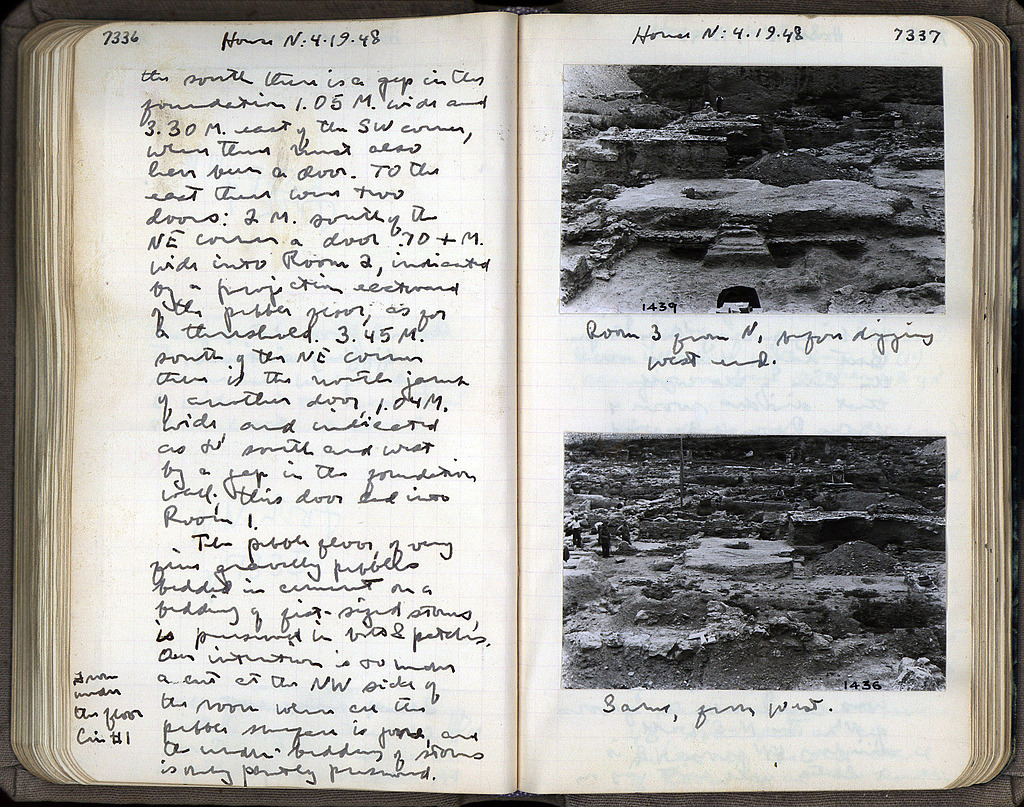 7336 House N: 4.19.48
the south there is a gap in the
foundation 1.05 M. wide and
3.30 M. east of the SW corner,
where there must also
have been a door. To the
east there were two
doors: 2 M. south of the
NE corner a door .70+ M.
wide into Room 2, indicated
by a projection eastward
of the pebble floor, as for
a threshold. 3.45 M.
south of the NE corner
there is the north jamb
of another door, 1.04 M.
wide, and indicated
as to south and west
by a gap in the foundation
wall. This door led into
Room 1.
The pebble floor, of very
fine gravelly pebbles
bedded in cement on a
bedding of fist-sized stones,
is preserved in bits & patches.
Our intention is to make
a cut at the NW side of
the room where all the
pebble surface is gone, and
the under-bedding of stones
is only partly preserved.
From
under
the floor
Coin #1
House N: 4.19.48 7337
1439
Room 3 from N, before digging
west end.
1436
Same, from west.